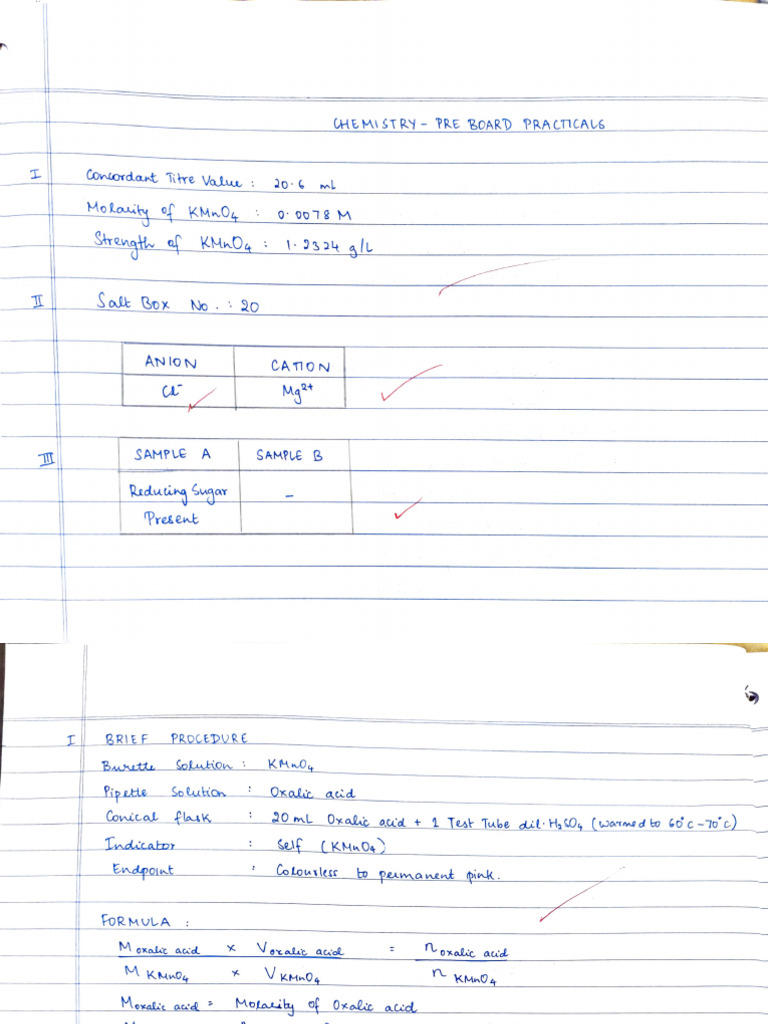 CHEMISTRY - PRE BOARD PRACTICALS
I Concordant Titre Value : 20.6 mL
Molarity of KMnO₄ : 0.0078 M
Strength of KMnO₄ : 1.2324 g/L
II Salt Box No. : 20
ANION CATION
Cl⁻ Mg²⁺
III SAMPLE A SAMPLE B
Reducing Sugar –
Present
I BRIEF PROCEDURE
Burette Solution : KMnO₄
Pipette Solution : Oxalic acid
Conical flask : 20 mL Oxalic acid + 1 Test Tube dil. H₂SO₄ (warmed to 60°C - 70°C)
Indicator : Self (KMnO₄)
Endpoint : Colourless to permanent pink.
FORMULA :
M oxalic acid x V oxalic acid = n oxalic acid
M KMnO₄ x V KMnO₄ n KMnO₄
Moxalic acid = Molarity of Oxalic acid